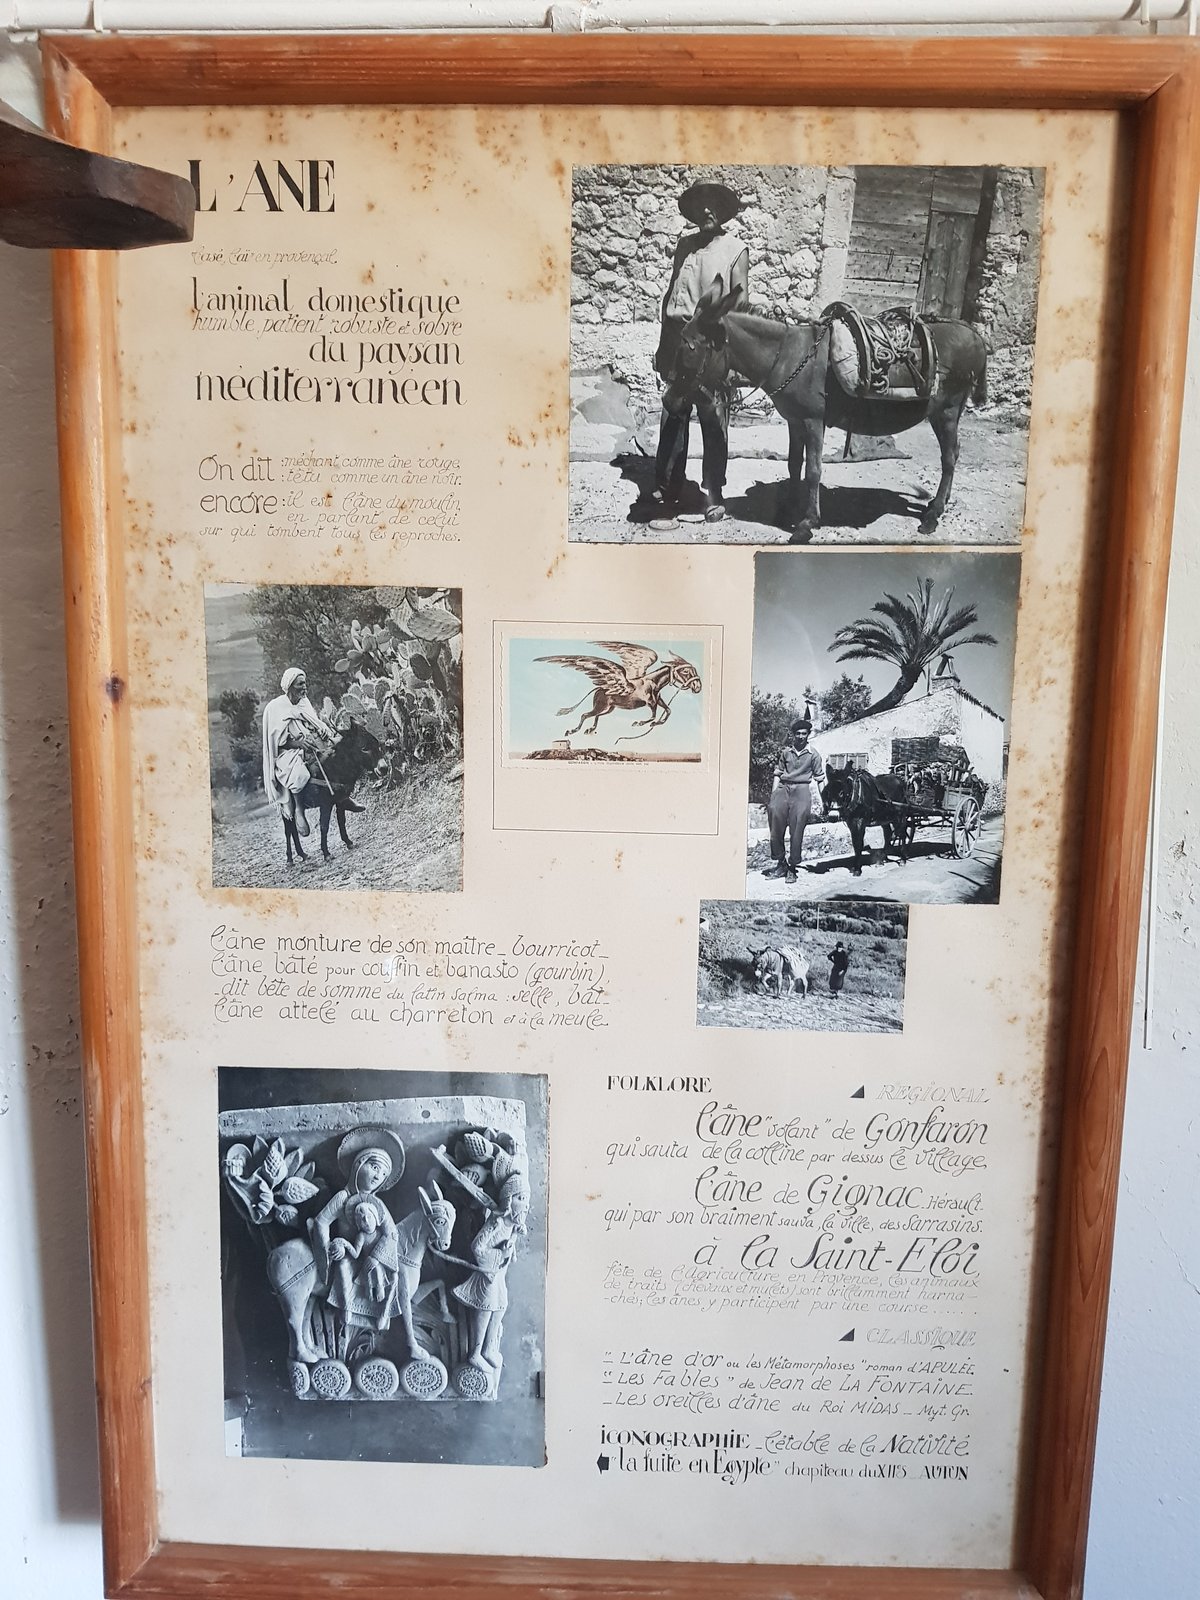 L'ANE
l'asé, l'aï en provençal.
l'animal domestique
humble, patient robuste et sobre
du paysan
méditerranéen
On dit : méchant comme âne rouge,
: têtu comme un âne noir.
encore : il est l'âne du moulin,
en parlant de celui
sur qui tombent tous les reproches.
GONFARON
L'âne monture de son maître _ bourricot _
L'âne bâté pour couffin et banasto (gourbin)
_ dit bête de somme du latin salma : selle, bât _
L'âne attelé au charreton et à la meule.
FOLKLORE
REGIONAL
L'âne "volant" de Gonfaron
qui sauta de la colline par dessus le village,
l'âne de Gignac. Hérault-
qui par son braiment sauva, la ville, des Sarrasins.
à la Saint-Eloi
fête de l'Agriculture en Provence, les animaux
de traits (chevaux et mulets) sont brillamment harna-
-chés; les ânes y participent par une course .......
CLASSIQUE
" L'âne d'or ou les Métamorphoses "roman d'APULÉE.
" LES FABLES " de Jean de LA FONTAINE.
_ LES OREILLES D'ÂNE du ROI MIDAS _ Myt. Gr.
iCONOGRAPHiE _ L'étable de la Nativité
"la fuite en Egypte" chapiteau du XIIS _ AUTUN